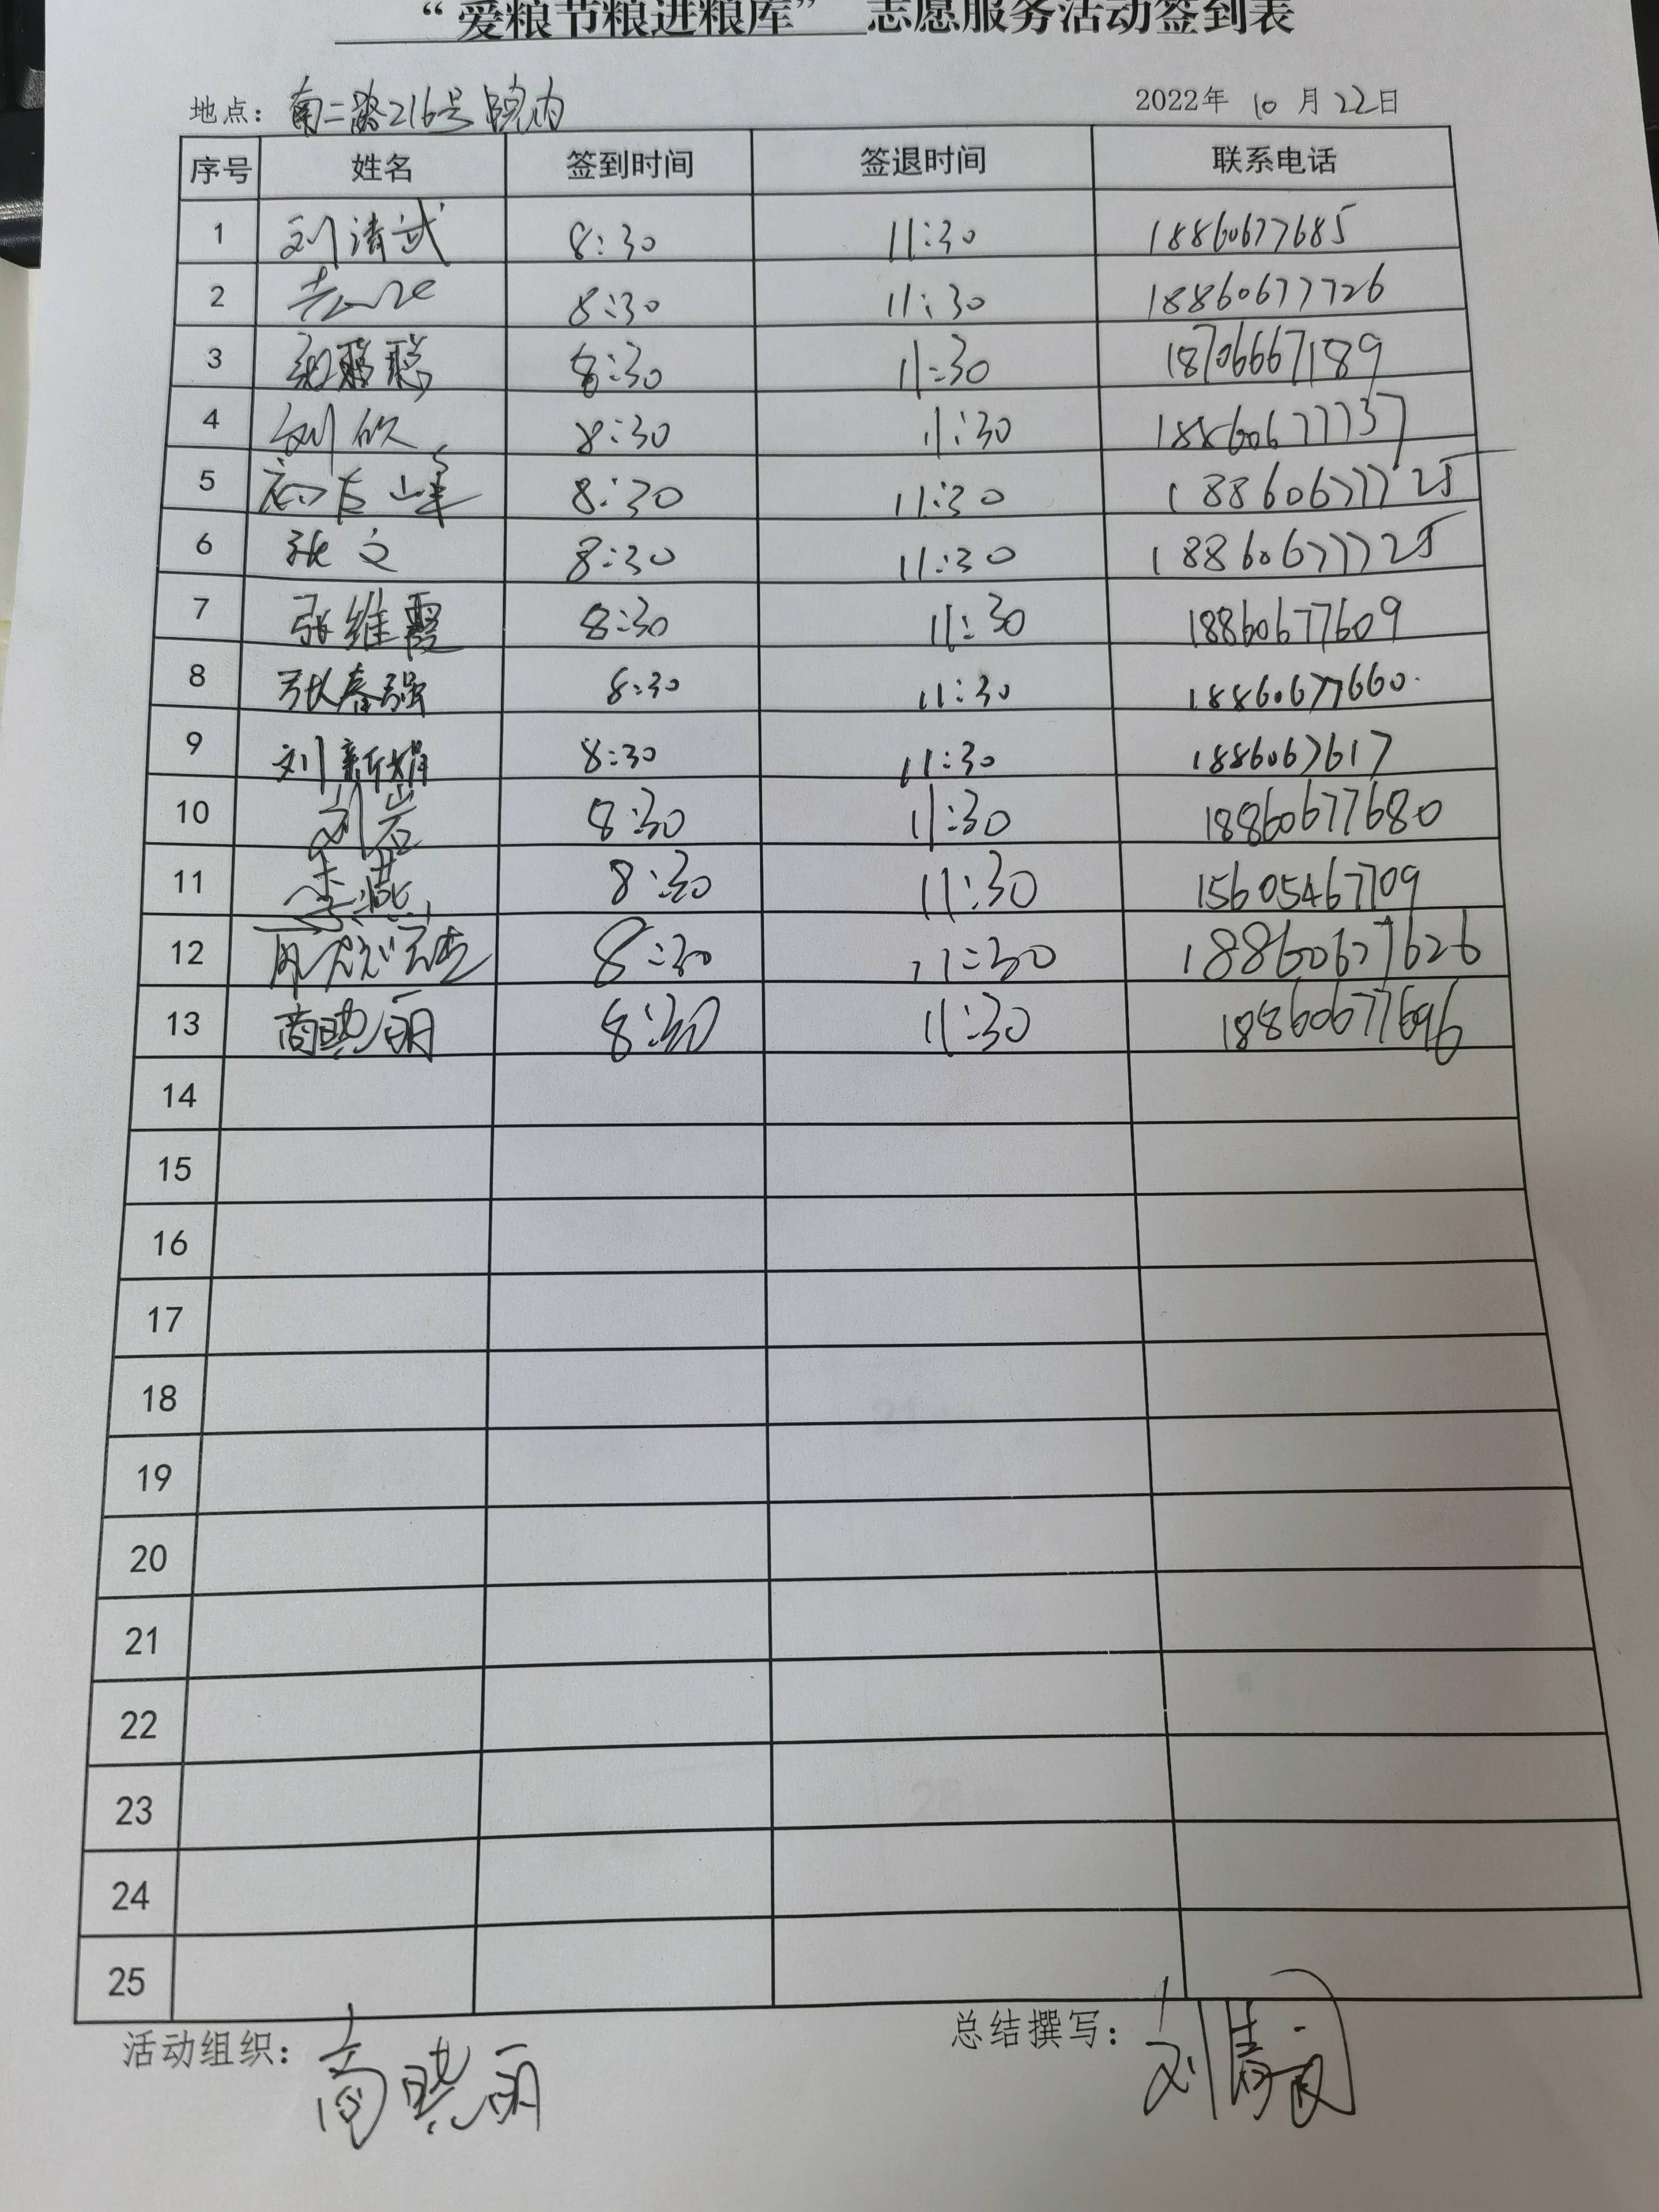 “爱粮节粮进粮库” 志愿服务活动签到表
地点: 南二路216号院内 2022年 10 月 22日
序号 姓名 签到时间 签退时间 联系电话
1 刘清武 8:30 11:30 18860677685
2 8:30 11:30 18860677726
3 聪聪 8:30 11:30 18706667189
4 刘欣 8:30 11:30 18860677737
5 8:30 11:30 18860677725
6 张文 8:30 11:30 18860677725
7 张维霞 8:30 11:30 18860677609
8 张春强 8:30 11:30 18860677660
9 刘新娟 8:30 11:30 1886067617
10 刘岩 8:30 11:30 18860677680
11 李燕 8:30 11:30 15605467709
12 8:30 11:30 18860677626
13 商晓丽 8:30 11:30 18860677696
14
15
16
17
18
19
20
21
22
23
24
25
活动组织: 商晓丽 总结撰写: 刘